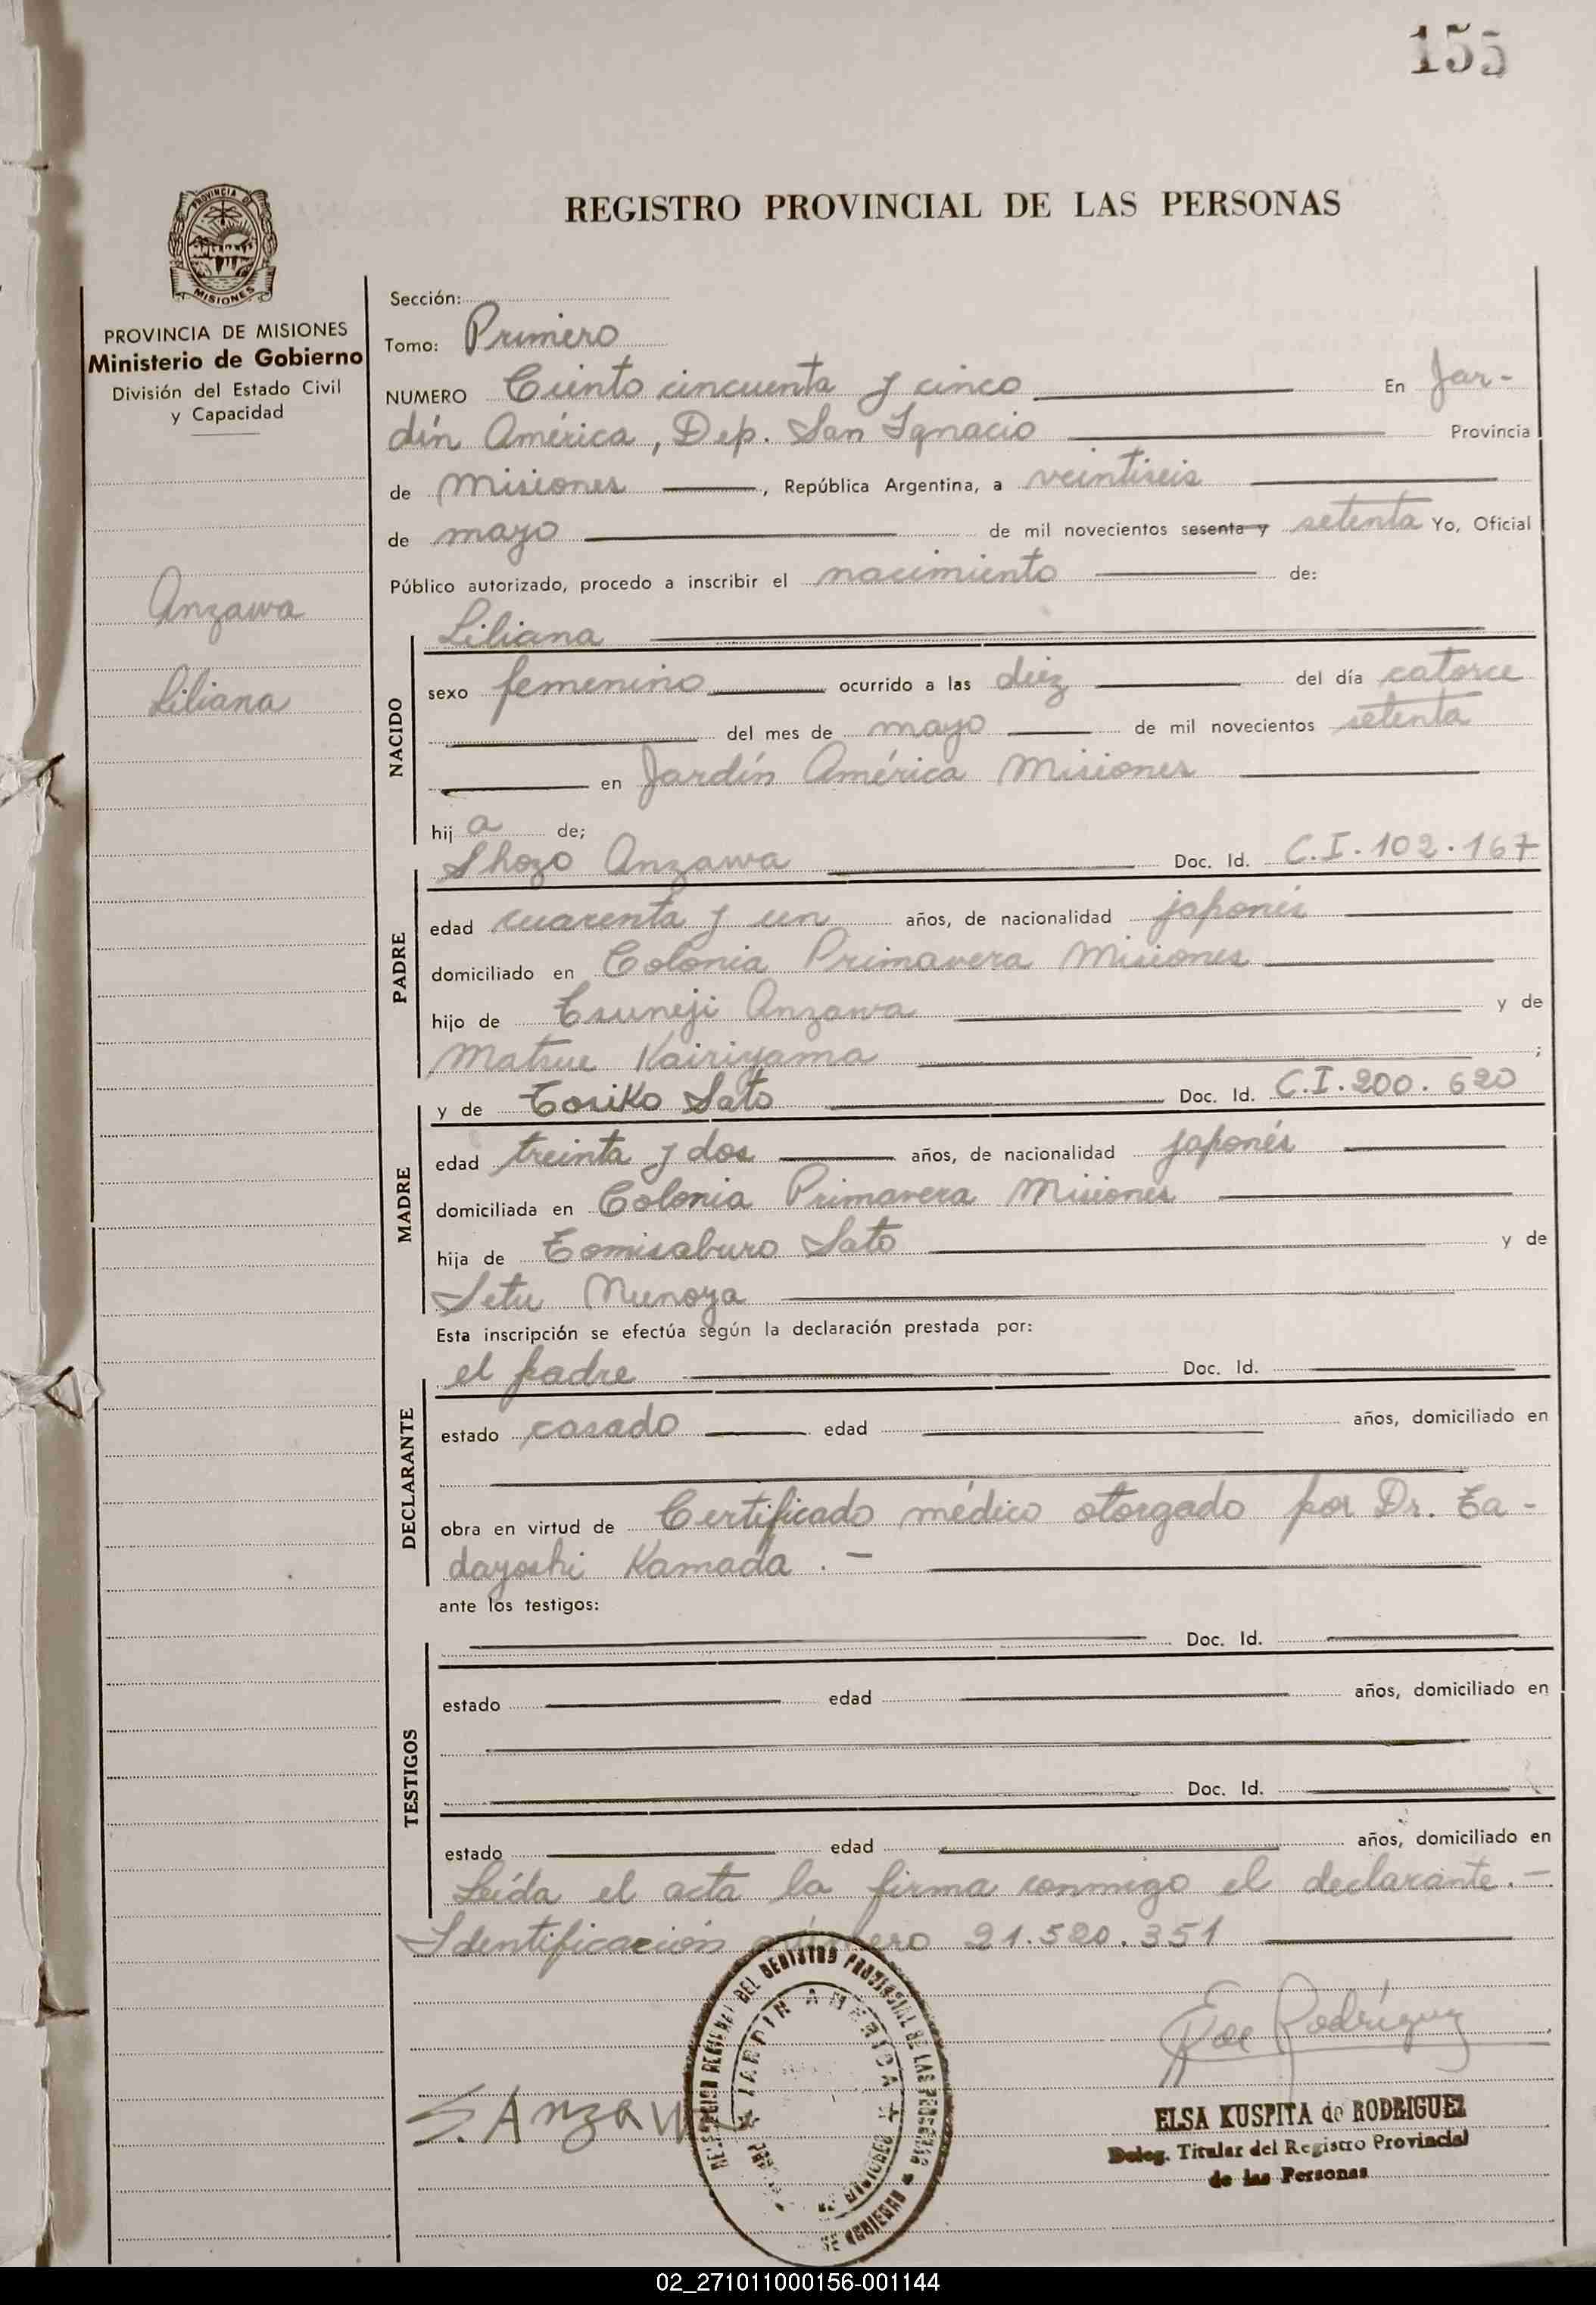 155
PROVINCIA DE
MISIONES
REGISTRO PROVINCIAL DE LAS PERSONAS
PROVINCIA DE MISIONES
Ministerio de Gobierno
División del Estado Civil
y Capacidad
Anzawa
Liliana
Sección:
Tomo: Primero
NUMERO Ciento cincuenta y cinco En Jar-
dín América, Dep. San Ignacio Provincia
de Misiones, República Argentina, a veintiseis
de mayo de mil novecientos sesenta y setenta Yo, Oficial
Público autorizado, procedo a inscribir el nacimiento de:
NACIDO
Liliana
sexo femenino ocurrido a las diez del día catorce
del mes de mayo de mil novecientos setenta
en Jardín América Misiones
hija de;
PADRE
Shozo Anzawa Doc. Id. C.I. 102.167
edad cuarenta y un años, de nacionalidad japonés
domiciliado en Colonia Primavera Misiones
hijo de Tsuneji Anzawa y de
Matsue Kairiyama ;
MADRE
y de Tosiko Sato Doc. Id. C.I. 200.620
edad treinta y dos años, de nacionalidad japonés
domiciliada en Colonia Primavera Misiones
hija de Tomisaburo Sato y de
Setu Munoya
Esta inscripción se efectúa según la declaración prestada por:
DECLARANTE
el padre Doc. Id.
estado casado edad años, domiciliado en
obra en virtud de Certificado médico otorgado por Dr. Ta-
dayoshi Kamada .-
ante los testigos:
TESTIGOS
Doc. Id.
estado edad años, domiciliado en
Doc. Id.
estado edad años, domiciliado en
Leída el acta la firma conmigo el declarante.-
Identificación número 21.520.351
DELEGACION REGIONAL DEL REGISTRO PROVINCIAL DE LAS PERSONAS
JARDIN AMERICA
MISIONES
DE GOBIERNO
S. Anzawa
E de Rodríguez
ELSA KUSPITA de RODRIGUEZ
Deleg. Titular del Registro Provincial
de las Personas
02_271011000156-001144